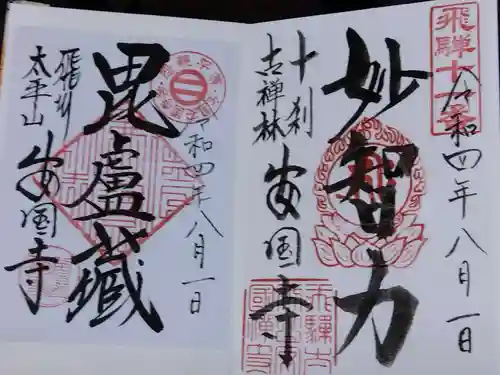 飛騨三十三番
令和四年八月一日
妙智力
十刹
古禅林
安国寺
令和四年八月一日
毘盧蔵
飛州
太平山
安国寺